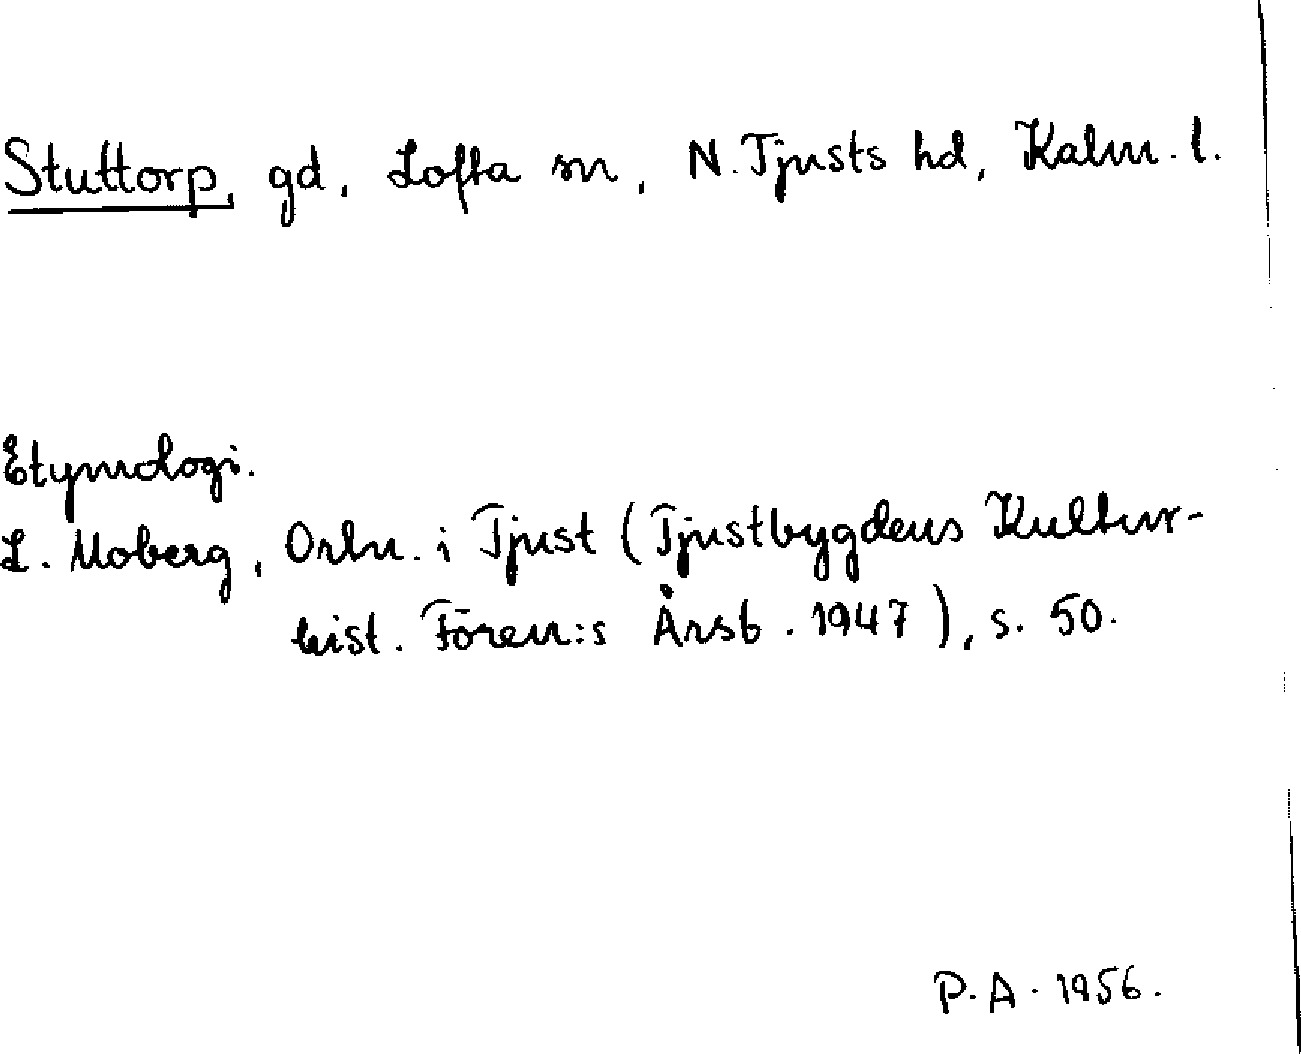 Stuttorp, gd, Lofta sn, N. Tjusts hd, Kalm. l.
Etymologi.
L. Moberg, Ortn. i Tjust (Tjustbygdens Kultur-
hist. Fören:s Årsb. 1947), s. 50.
P. A. 1956.